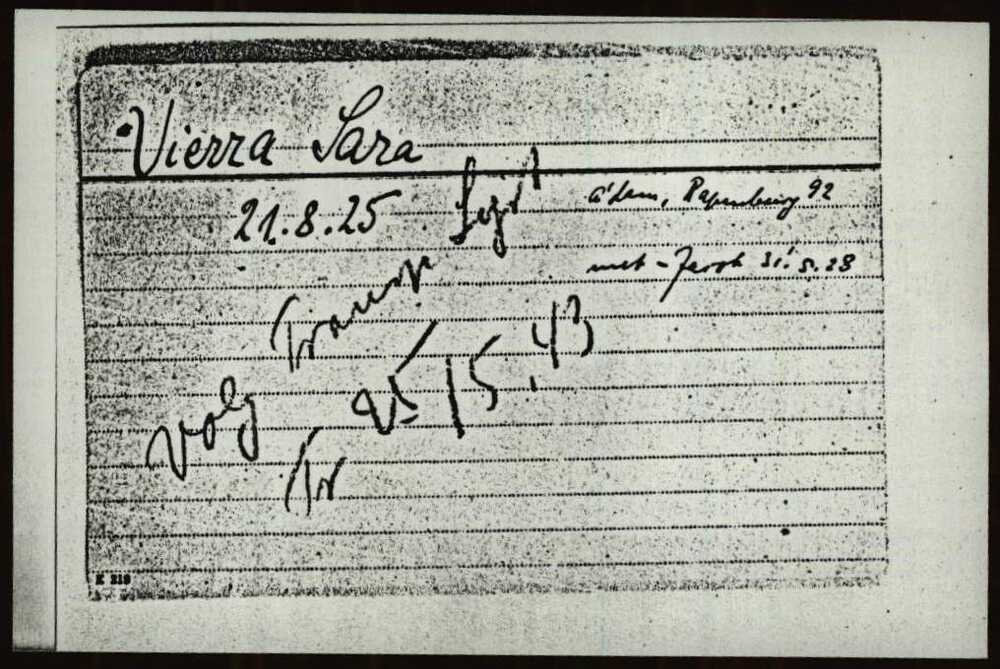 Vierra Sara
21.8.25
a'dam, Papenburg 92
met - 31.5.23
volg Transp. Lijst
Tr 25/5.43
K 213